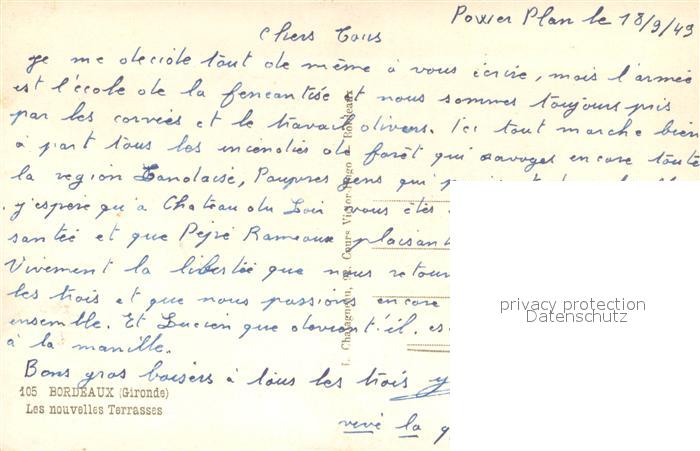 Power Plan le 18/9/49
Chers Tous
Je me decide tout de même à vous écrire, mais l'armée
est l'école de la feneantise et nous sommes toujours pris
par les corvées et le travaux divers. Ici tout marche bien
à part tous les incendies de forêt qui ravages encore toute
la region Landaise, Pauvres gens qui
j'espere qu'a Chateau du Loir vous êtes
santée et que Pépé Rameaux plaisant
Vivement la libertée que nous retour
les trois et que nous passions encore
ensemble. Et Lucien que devient'il, es
à la manille.
Bons gros baisers à tous les trois
vive la q
105 BORDEAUX (Gironde)
Les nouvelles Terrasses
Cours Victor-Hugo - Bordeaux
privacy protection
Datenschutz